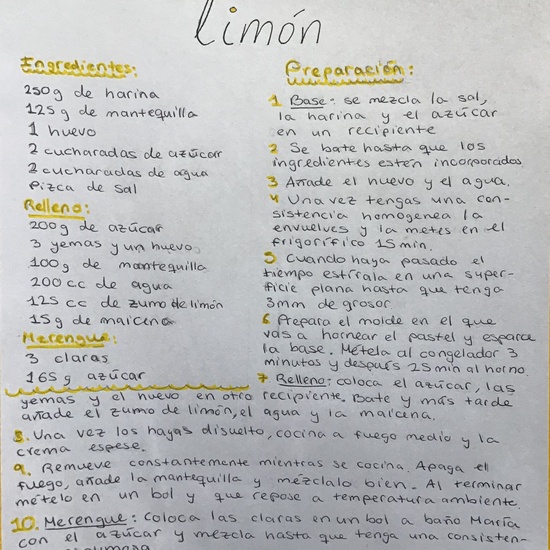 limón
Engredientes:
250g de harina
125g de mantequilla
1 huevo
2 cucharadas de azúcar
2 cucharadas de agua
Pizca de sal
Relleno:
200g de azúcar
3 yemas y un huevo
100g de mantequilla
200 cc de agua
125 cc de zumo de limón
15g de maicena
Merengue:
3 claras
165 g azúcar
Preparación:
1 Base: se mezcla la sal,
la harina y el azúcar
en un recipiente
2 Se bate hasta que los
ingredientes estén incorporados
3 Añade el huevo y el agua.
4 Una vez tengas una con-
sistencia homogenea la
envuelves y la metes en el
frigorífico 15 min.
5 Cuando haya pasado el
tiempo estírala en una super-
ficie plana hasta que tenga
3mm de grosor.
6 Prepara el molde en el que
vas a hornear el pastel y esparce
la base. Métela al congelador 3
minutos y después 25 min al horno.
7 Relleno: coloca el azúcar, las
yemas y el huevo en otro recipiente. Bate y más tarde
añade el zumo de limón, el agua y la maicena.
8. Una vez los hayas disuelto, cocina a fuego medio y la
crema espese.
9. Remueve constantemente mientras se cocina. Apaga el
fuego, añade la mantequilla y mézclalo bien. Al terminar
mételo en un bol y que repose a temperatura ambiente.
10. Merengue: Coloca las claras en un bol a baño María
con el azúcar y mezcla hasta que tenga una consisten-